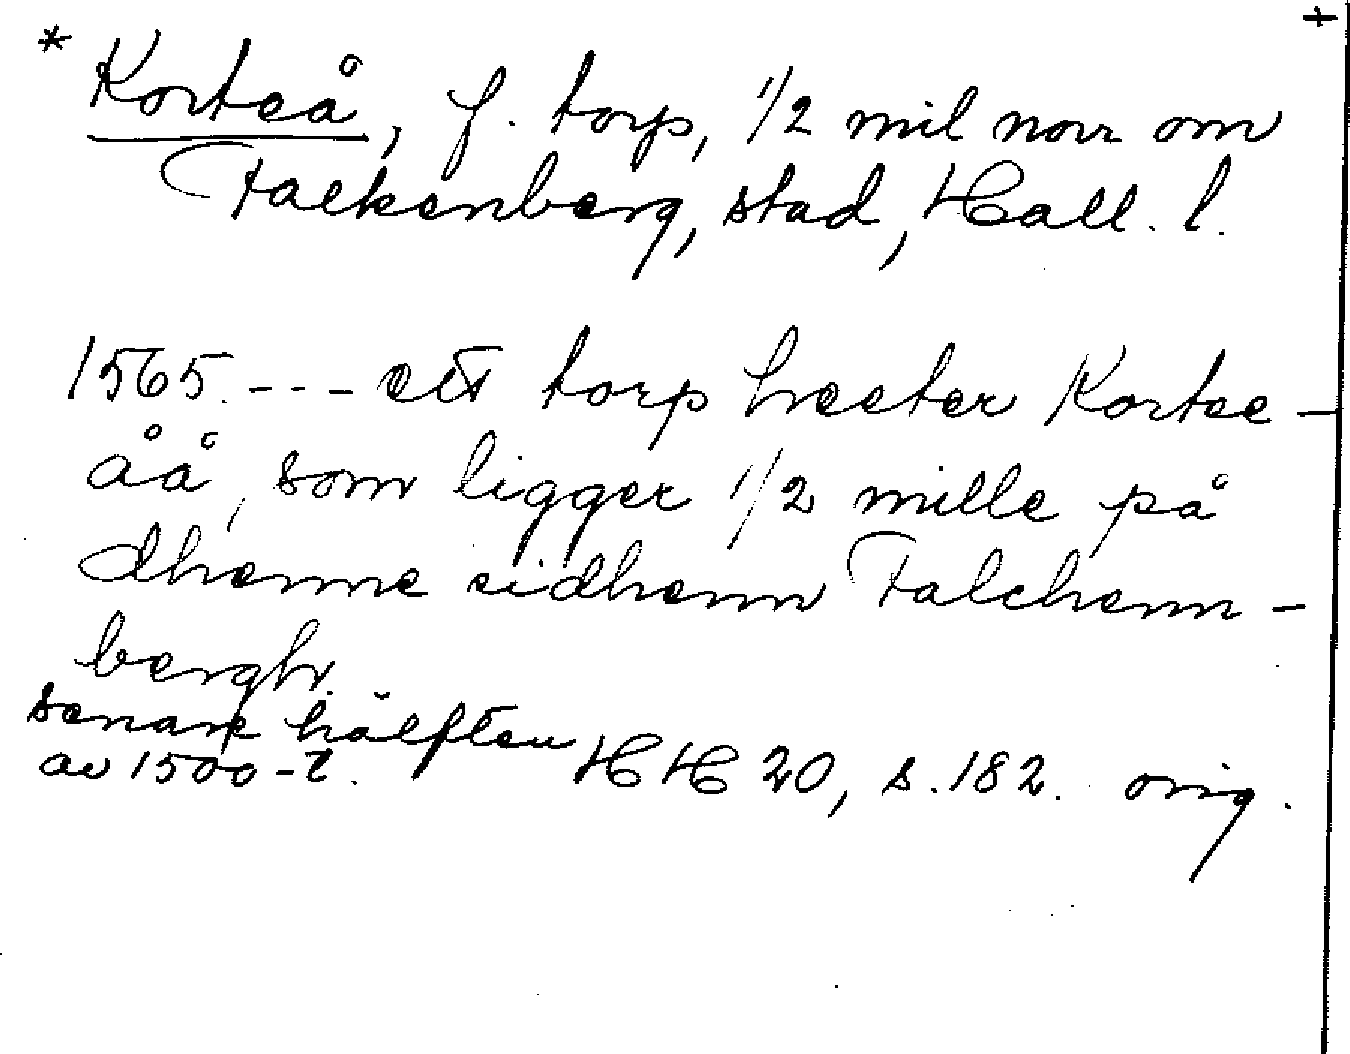 * Korteå, f. torp, 1/2 mil norr om +
Falkenberg, stad, Hall. l.
1565. --- ett torp heeter Kortee-
åå, som ligger 1/2 mille på
dhenne sidhenn Falchenn-
bergh.
senare hälften
av 1500-t. HH 20, s. 182. orig.